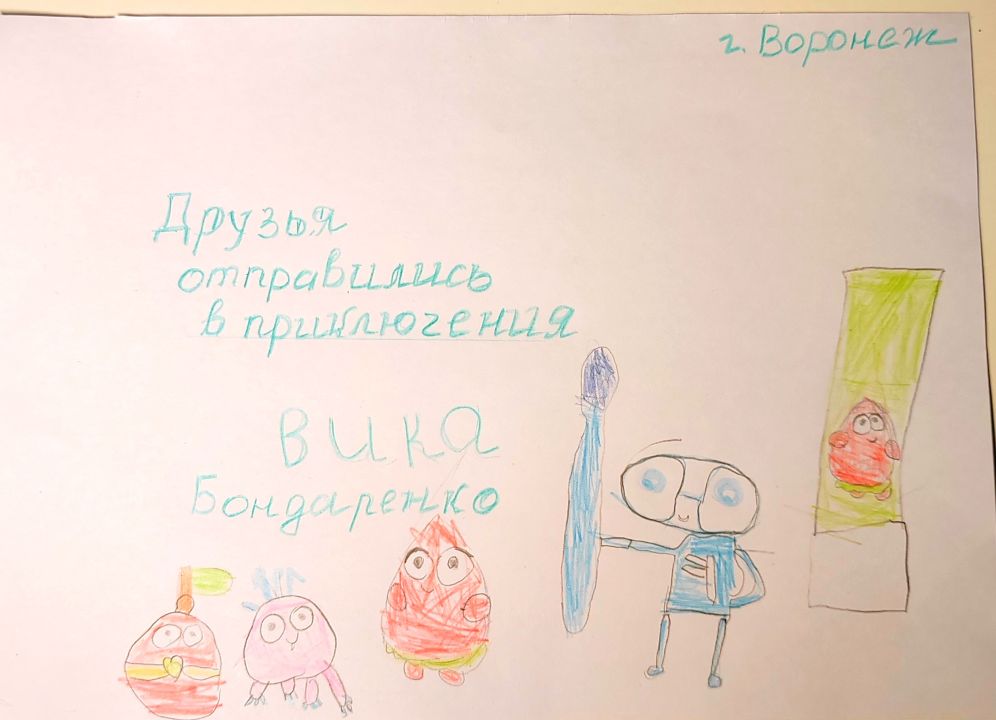 г. Воронеж
Друзья
отправились
в приключения
Вика
Бондаренко